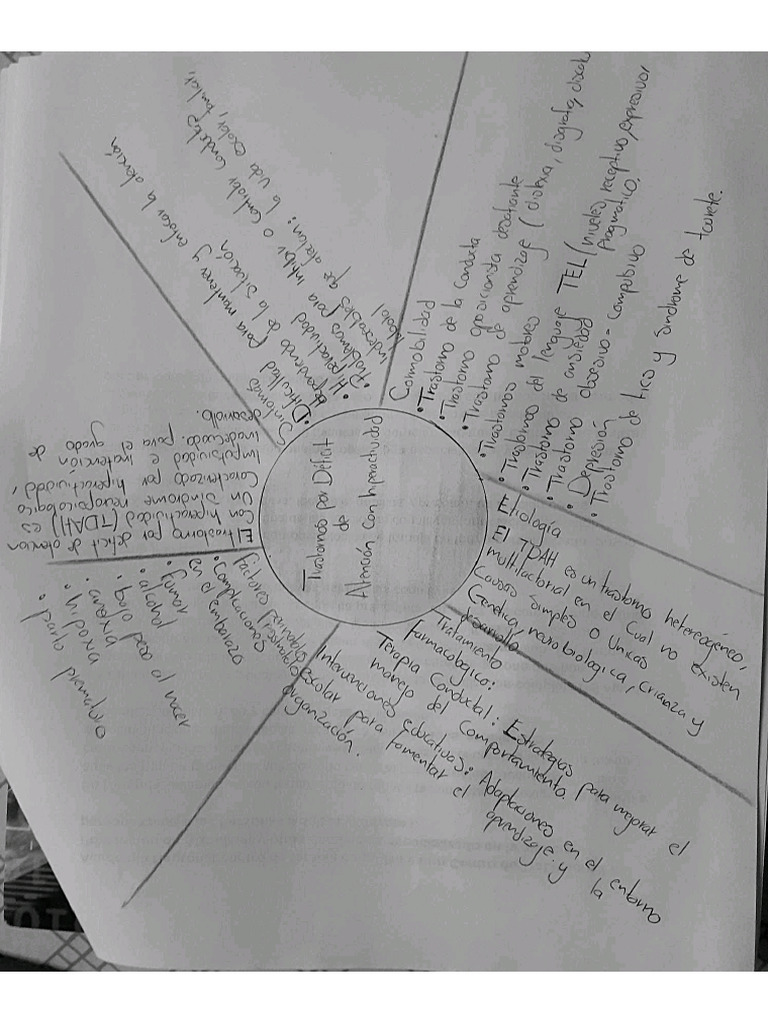 Trastorno por Déficit
de
Atención con hiperactividad
El trastorno por deficit de atencion
con hiperactividad (TDAH) es
un sindrome neuropsicologico
Caracterizado por hiperactividad,
Impulsividad e inatención
inadecuada para el grado de
desarrollo.
Sintomas
• Dificultad para mantener y enfocar la atención
dependiendo de la situación
• Hiperactividad
• Problemas para inhibir o controlar conductas
indeseables que afectan: la vida escolar, familiar,
Comorbilidad
• Trastorno de la Conducta
• Trastorno oposicionista desafiante
• Trastorno de aprendizaje (dislexia, disgrafia,
• Trastornos motores
• Trastornos del lenguaje TEL (niveles receptivo, expresivo,
Pragmatico.
• Trastorno de ansiedad
• Trastorno obsesivo - Compulsivo
• Depresión
• Trastorno de tics y sindrome de tourete.
Etiología
El TDAH es un trastorno hetereogéneo,
multifactorial en el cual no existen
Causas simples o Unicas
Genética, neurobiologica, crianza y
desarrollo
Tratamiento
Farmacologico:
Terapia Conductal: Estrategias para mejorar el
manejo del comportamiento.
Intervenciones educativas: Adaptaciones en el entorno
escolar para fomentar el aprendizaje y la
organización.
Factores
• Complicaciones
en el embarazo
• fumar
• alcohol
• bajo peso al nacer
• anoxia
• hipoxia
• parto prematuro